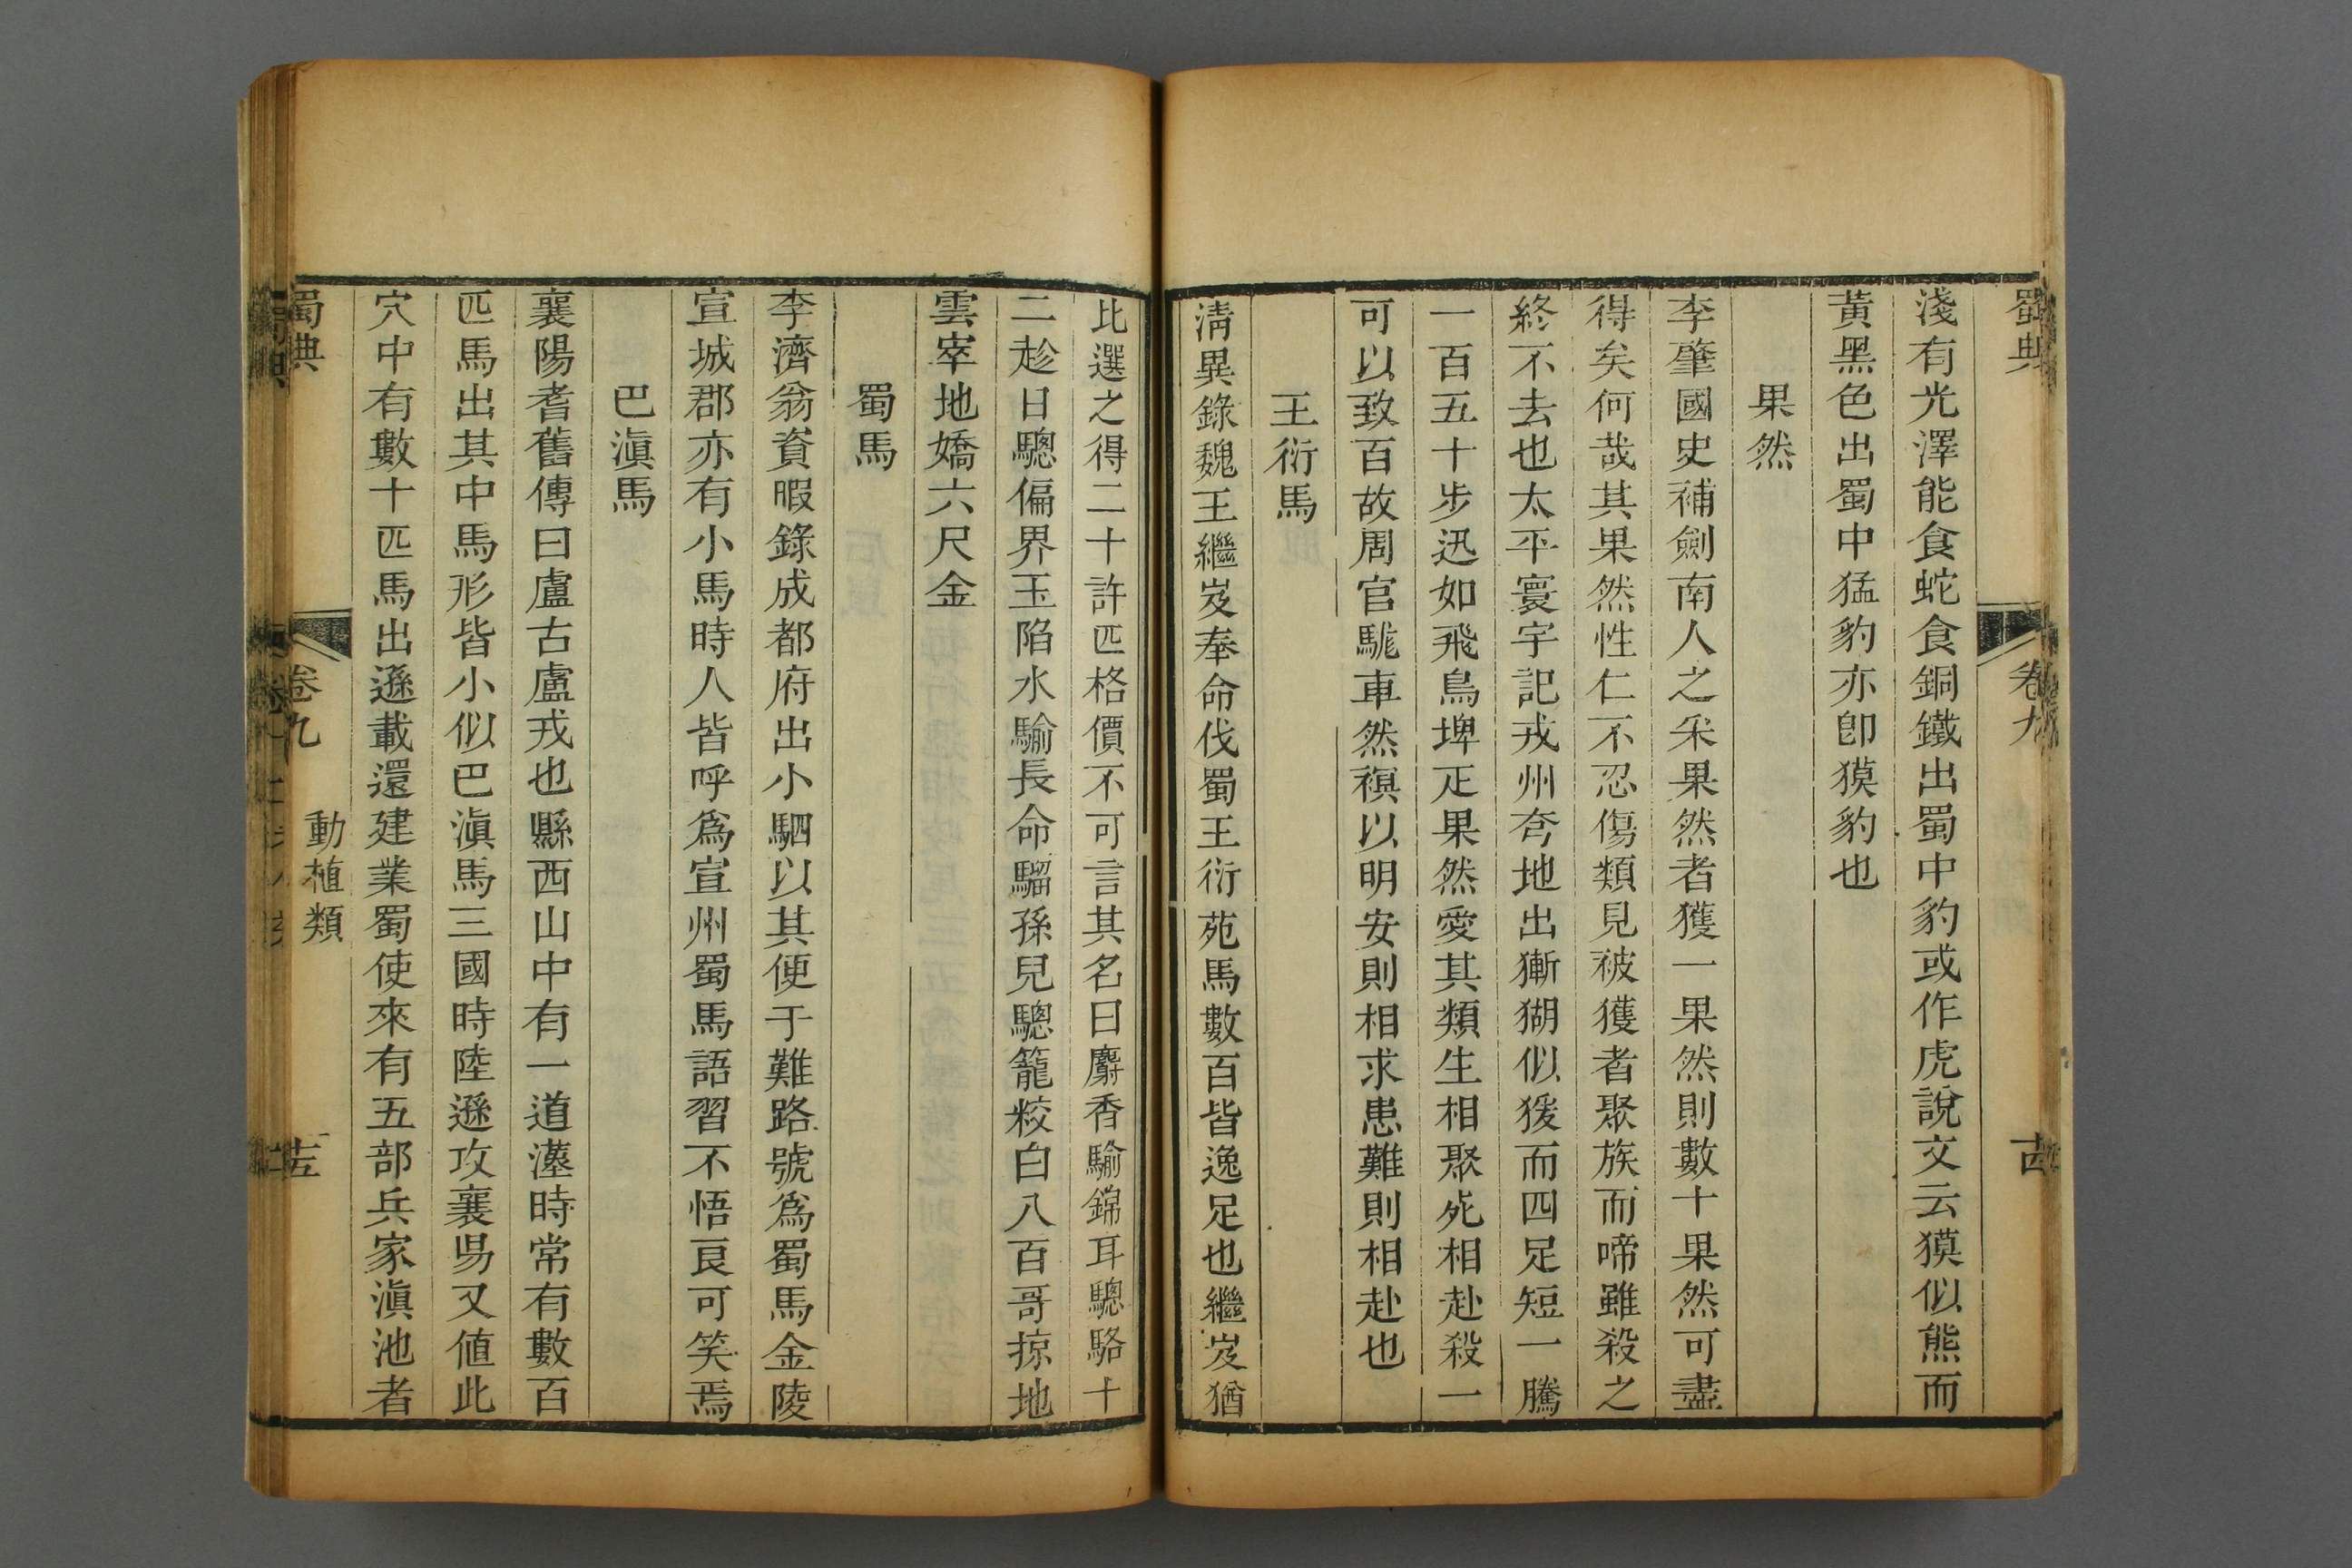 蜀典
卷九
淺有光澤能食蛇食銅鐵出蜀中豹或作虎說文云獏似熊而
黃黑色出蜀中猛豹亦卽獏豹也
果然
李肇國史補劍南人之采果然者獲一果然則數十果然可盡
得矣何哉其果然性仁不忍傷類見被獲者聚族而啼雖殺之
終不去也太平寰宇記戎州夸地出獑猢似猨而四足短一騰
一百五十步迅如飛鳥埤疋果然愛其類生相聚死相赴殺一
可以致百故周官駹車然𧜀以明安則相求患難則相赴也
王衍馬
淸異錄魏王繼岌奉命伐蜀王衍苑馬數百皆逸足也繼岌猶
比選之得二十許匹格價不可言其名曰麝香騟錦耳驄駱十
二趁日驄偏界玉陷水騟長命騮孫兒驄籠㸩白八百哥掠地
雲窣地嬌六尺金
蜀馬
李濟翁資暇錄成都府出小駟以其便于難路號爲蜀馬金陵
宣城郡亦有小馬時人皆呼爲宣州蜀馬語習不悟良可笑焉
巴滇馬
襄陽耆舊傳曰盧古盧戎也縣西山中有一道漢時常有數百
匹馬出其中馬形皆小似巴滇馬三國時陸遜攻襄昜又値此
穴中有數十匹馬出遜載還建業蜀使來有五部兵家滇池者
蜀典
卷九
動植類